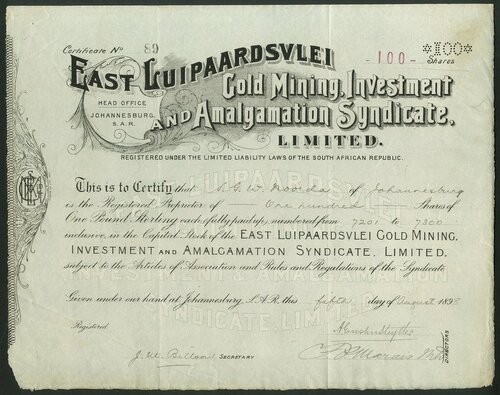 Certificate No 89
-100-
*100*
Shares
EAST LUIPAARDSVLEI
Gold Mining, Investment
AND Amalgamation Syndicate,
LIMITED.
HEAD OFFICE
JOHANNESBURG,
S.A.R.
REGISTERED UNDER THE LIMITED LIABILITY LAWS OF THE SOUTH AFRICAN REPUBLIC.
This is to Certify that S. G. W. Noorda of Johannesburg
is the Registered Proprietor of One hundred Shares of
One Pound Sterling each (fully paid up) numbered from 7201 to 7300
inclusive, in the Capital Stock of the EAST LUIPAARDSVLEI GOLD MINING,
INVESTMENT AND AMALGAMATION SYNDICATE, LIMITED,
subject to the Articles of Association and Rules and Regulations of the Syndicate
Given under our hand at Johannesburg, S.A.R. this fifth day of August 189
Registered
SECRETARY
DIRECTORS